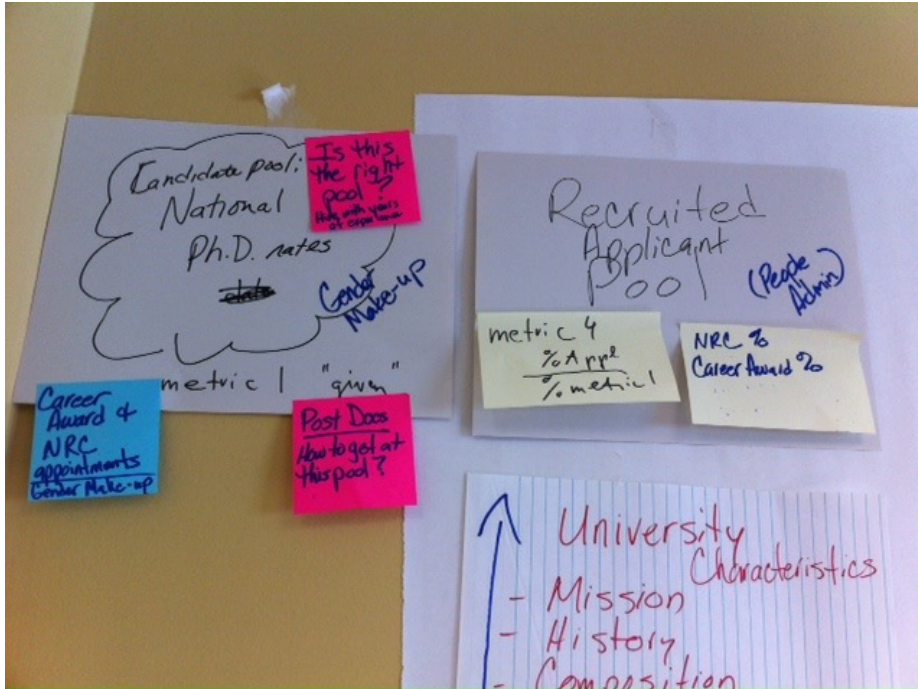 Candidate pool:
National
Ph.D. rates
Gender
Make-up
metric 1 "given"
Is this
the right
pool?
with years
of experience
Career
Award &
NRC
appointments
Gender Make-up
Post Docs
How to get at
this pool?
Recruited
Applicant
Pool
(People
Admin)
metric 4
% Appl
% metric 1
NRC %
Career Award %
University
Characteristics
- Mission
- History
- Composition